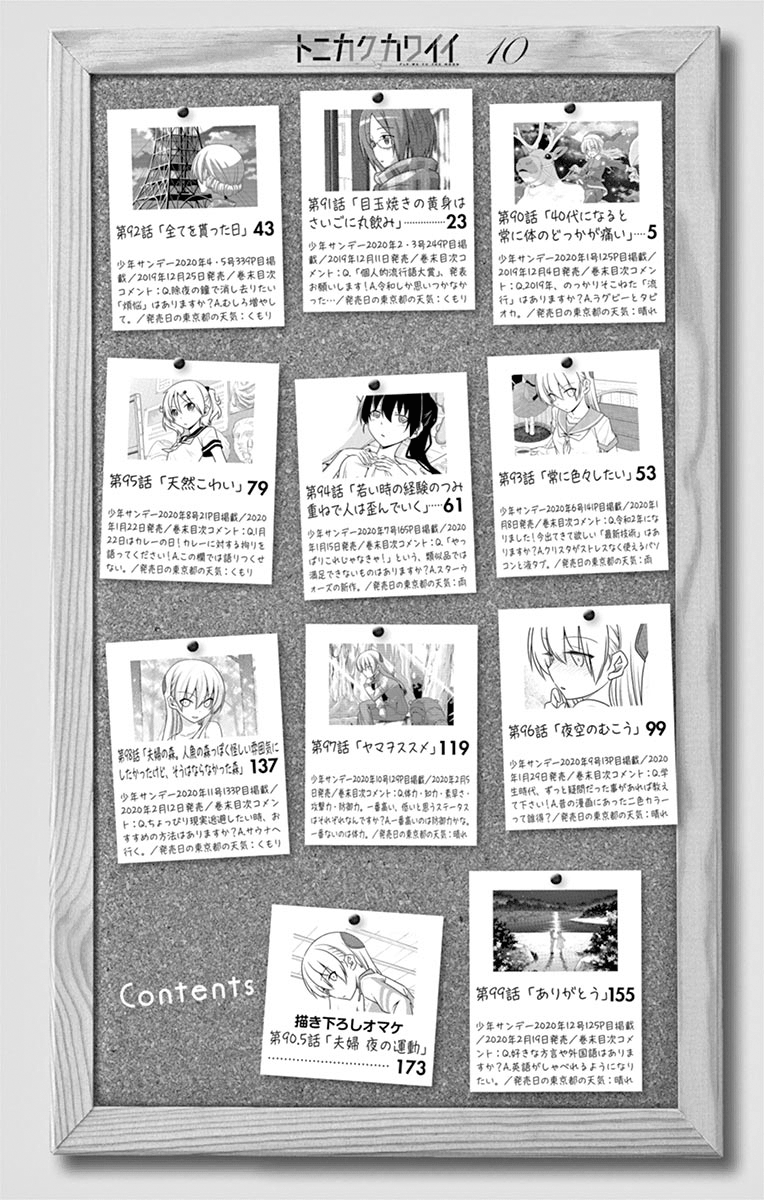 トニカクカワイイ 10
FLY ME TO THE MOON
第90話「40代になると
常に体のどっかが痛い」…5
少年サンデー2020年1号125P目掲
載/2019年12月4日発売/巻末目次
コメント:Q.2019年、のっかりそこねた「流
行」はありますか?A.ラグビーとタピ
オカ。/発売日の東京都の天気:晴れ
第91話「目玉焼きの黄身は
さいごに丸飲み」……………23
少年サンデー2020年2・3号249P目掲
載/2019年12月11日発売/巻末目次コ
メント:Q.「個人的流行語大賞」、発表
お願いします!A.令和しか思いつかなか
った…/発売日の東京都の天気:くもり
第92話「全てを貰った日」43
少年サンデー2020年4・5号339P目掲
載/2019年12月25日発売/巻末目次
コメント:Q.除夜の鐘で消し去りたい
「煩悩」はありますか?A.むしろ増やし
て。/発売日の東京都の天気:くもり
第93話「常に色々したい」53
少年サンデー2020年6号141P目掲載/2020年1
月8日発売/巻末目次コメント:Q.令和2年にな
りました!今出てきて欲しい「最新技術」はあ
りますか?A.クリスタがストレスなく使えるパソ
コンと液タブ。/発売日の東京都の天気:雨
第94話「若い時の経験のつみ
重ねで人は歪んでいく」……61
少年サンデー2020年7号165P目掲載/2020
年1月15日発売/巻末目次コメント:Q.「やっ
ぱりこれじゃなきゃ!」という、類似品では
満足できないものはありますか?A.スターウ
ォーズの新作。/発売日の東京都の天気:雨
第95話「天然こわい」79
少年サンデー2020年8号21P目掲載/2020
年1月22日発売/巻末目次コメント:Q.1月
22日はカレーの日!カレーに対する拘りを
語ってください!A.この欄では語りつくせ
ない。/発売日の東京都の天気:くもり
第96話「夜空のむこう」99
少年サンデー2020年9号13P目掲載/2020
年1月29日発売/巻末目次コメント:Q.学
生時代、ずっと疑問だった事があれば教え
て下さい!A.昔の漫画にあった二色カラー
って誰得?/発売日の東京都の天気:晴れ
第97話「ヤマヲススメ」119
少年サンデー2020年10号129P目掲載/2020年2月5
日発売/巻末目次コメント:Q.体力・知力・素早さ・
攻撃力・防御力。一番高い、低いと思うステータス
はそれぞれなんですか?A.一番高いのは防御力かな。
一番ないのは体力。/発売日の東京都の天気:晴れ
第98話「夫婦の森。人魚の森っぽく怪しい雰囲気に
したかったけど、そうはならなかった森」137
少年サンデー2020年11号133P目掲載/
2020年2月12日発売/巻末目次コメン
ト:Q.ちょっぴり現実逃避したい時、お
すすめの方法はありますか?A.サウナへ
行く。/発売日の東京都の天気:くもり
第99話「ありがとう」155
少年サンデー2020年12号125P目掲載
/2020年2月19日発売/巻末目次コメ
ント:Q.好きな方言や外国語はありま
すか?A.英語がしゃべれるようになり
たい。/発売日の東京都の天気:晴れ
Contents
描き下ろしオマケ
第90.5話「夫婦 夜の運動」
……………………………173